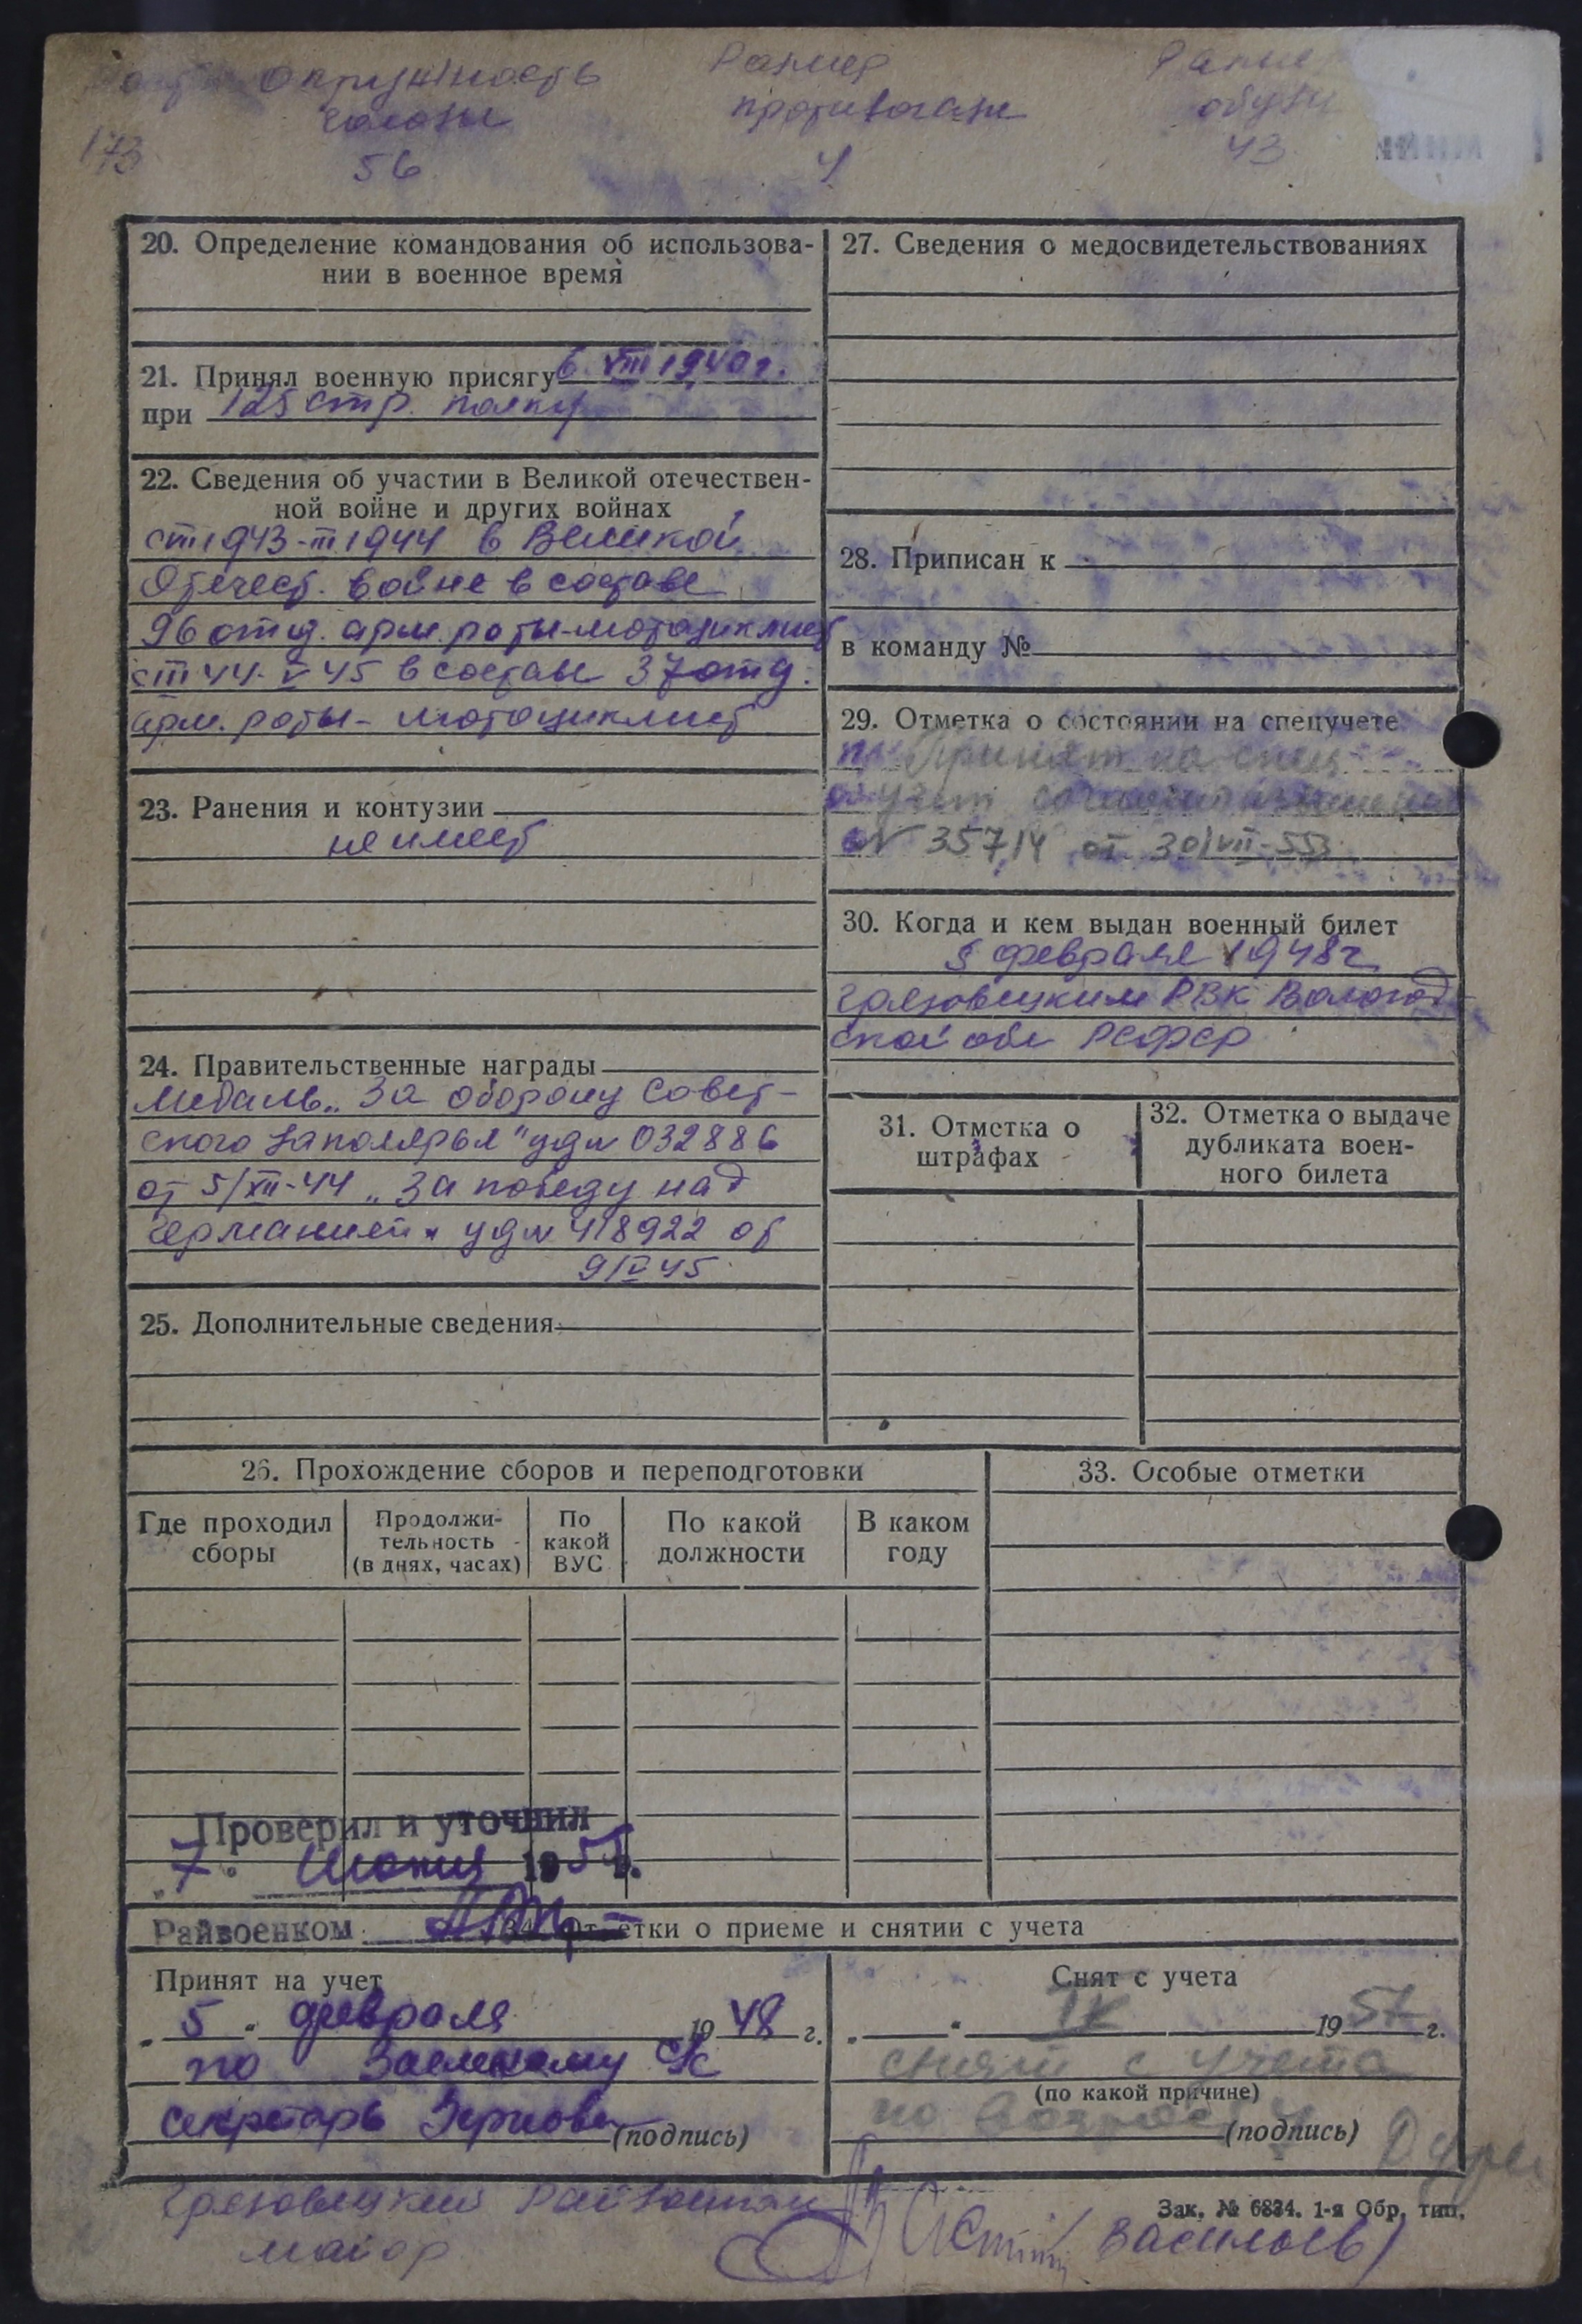 Окружность Размер Размер
головы противогаза обуви
173 56 4 43
20. Определение командования об использова-
нии в военное время
21. Принял военную присягу 6 VIII 1940 г.
при 125 стр. полку
22. Сведения об участии в Великой отечествен-
ной войне и других войнах
с III 1943-III 1944 в Великой
Отечест. войне в составе
96 отд. арм. роты-мотоциклист
с III 44-V 45 в составе 37 отд.
арм. роты-мотоциклист
23. Ранения и контузии
не имеет
24. Правительственные награды
Медаль „За оборону Совет-
ского Заполярья" уд № 032886
от 5/XII-44 „За победу над
Германией" уд № 418922 от
9/V 45
25. Дополнительные сведения
27. Сведения о медосвидетельствованиях
28. Приписан к
в команду №
29. Отметка о состоянии на спецучете
Принят на спец
учет
№ 357/4 от 30/VII-55
30. Когда и кем выдан военный билет
5 февраля 1948 г
Грязовецким РВК Вологод
ской обл РСФСР
31. Отметка о
штрафах
32. Отметка о выдаче
дубликата воен-
ного билета
26. Прохождение сборов и переподготовки
Где проходил
сборы
Продолжи-
тельность
(в днях, часах)
По
какой
ВУС
По какой
должности
В каком
году
33. Особые отметки
Проверил и уточнил
„7" 195 г.
Райвоенком
34. Отметки о приеме и снятии с учета
Принят на учет
„5" февраля 1948 г.
по с/с
секретарь (подпись)
Снят с учета
„ " IX 1957 г.
снят с учета
(по какой причине)
по возрасту
(подпись)
Грязовецкий Райвоенком
майор
Зак. № 6834. 1-я Обр. тип.
/Васильев/